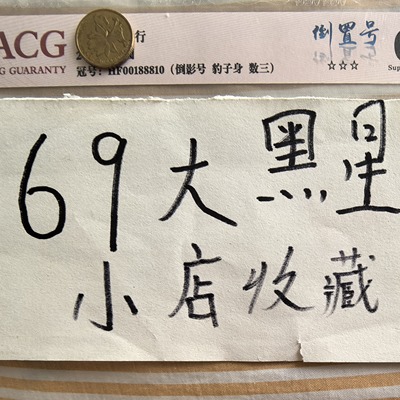 ACG
行
NG GUARANTY
冠号：HF00188810（倒影号 豹子身 数三）
倒置号
☆☆☆
Sup
69大黑星
小店收藏